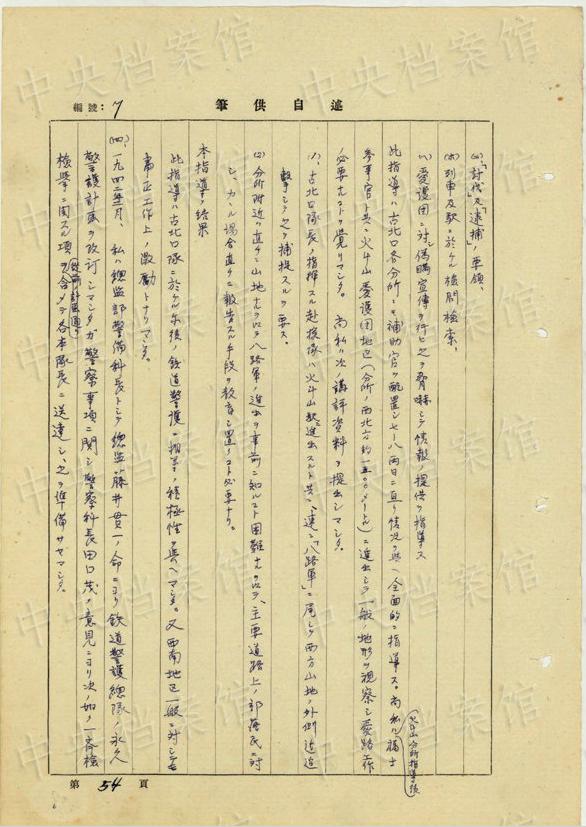 編號：7
自述供筆
「討伐」及「逮捕」ノ要領、
列車及駅ニ於ケル検問検索、
愛護団ニ対シ偽瞞宣伝ヲ行ヒ之ヲ脅嚇シテ情報ノ提供ヲ指導ス
此指導ハ古北口各分所ニモ補助官ヲ配置シ七—八両日ニ亘リ情況ヲ与ヘ全面的ニ指導ス。尚私ハ
（火斗山分所指導ノ後）
参事官ト共ニ火斗山愛護団地区（分所ノ西北方約一五〇〇メートル）ニ進出シテ一般ノ地形ヲ視察シ愛路工作
ノ必要ナコトヲ覚リマシタ。 尚私ハ次ノ講評資料ヲ提出シマシタ。
古北口隊長ノ指揮スル赴援隊ハ火斗山駅ニ進出スルト共ニ、速ニ「八路軍」ニ尾シテ西方山地ノ外側迄追
撃シテ之ヲ捕捉スルヲ要ス。
(2) 分所附近ハ直チニ山地ナルヲ以テ八路軍ノ進出ヲ事前ニ知ルコト困難ナルヲ以テ、主要道路上ノ部落民ニ対
シ、カヽル場合直チニ報告スル手段ヲ教育シ置クコト必要ナリ。
本指導ノ結果
此指導ハ古北口隊ニ於ケル爾後ノ鉄道警護ニ相当ノ積極性ヲ与ヘマシタ。又西南地区一般ニ対シテモ
粛正工作上ノ激励トナリマシタ。
(四)、一九四二年 月、 私ハ總監部警備科長トシテ總監藤井貫一ノ命ニヨリ鉄道警護總隊ノ永久
警護計画ヲ改訂シマシタガ警察事項ニ関シ警察科長田口茂ノ意見ニヨリ次ノ如ク一斉検
（従前ノ計画通リ）
検挙ニ関スル項ヲ含メテ各本隊長ニ送達シ、之ヲ準備サセマシタ。
第 54 頁
中央档案馆